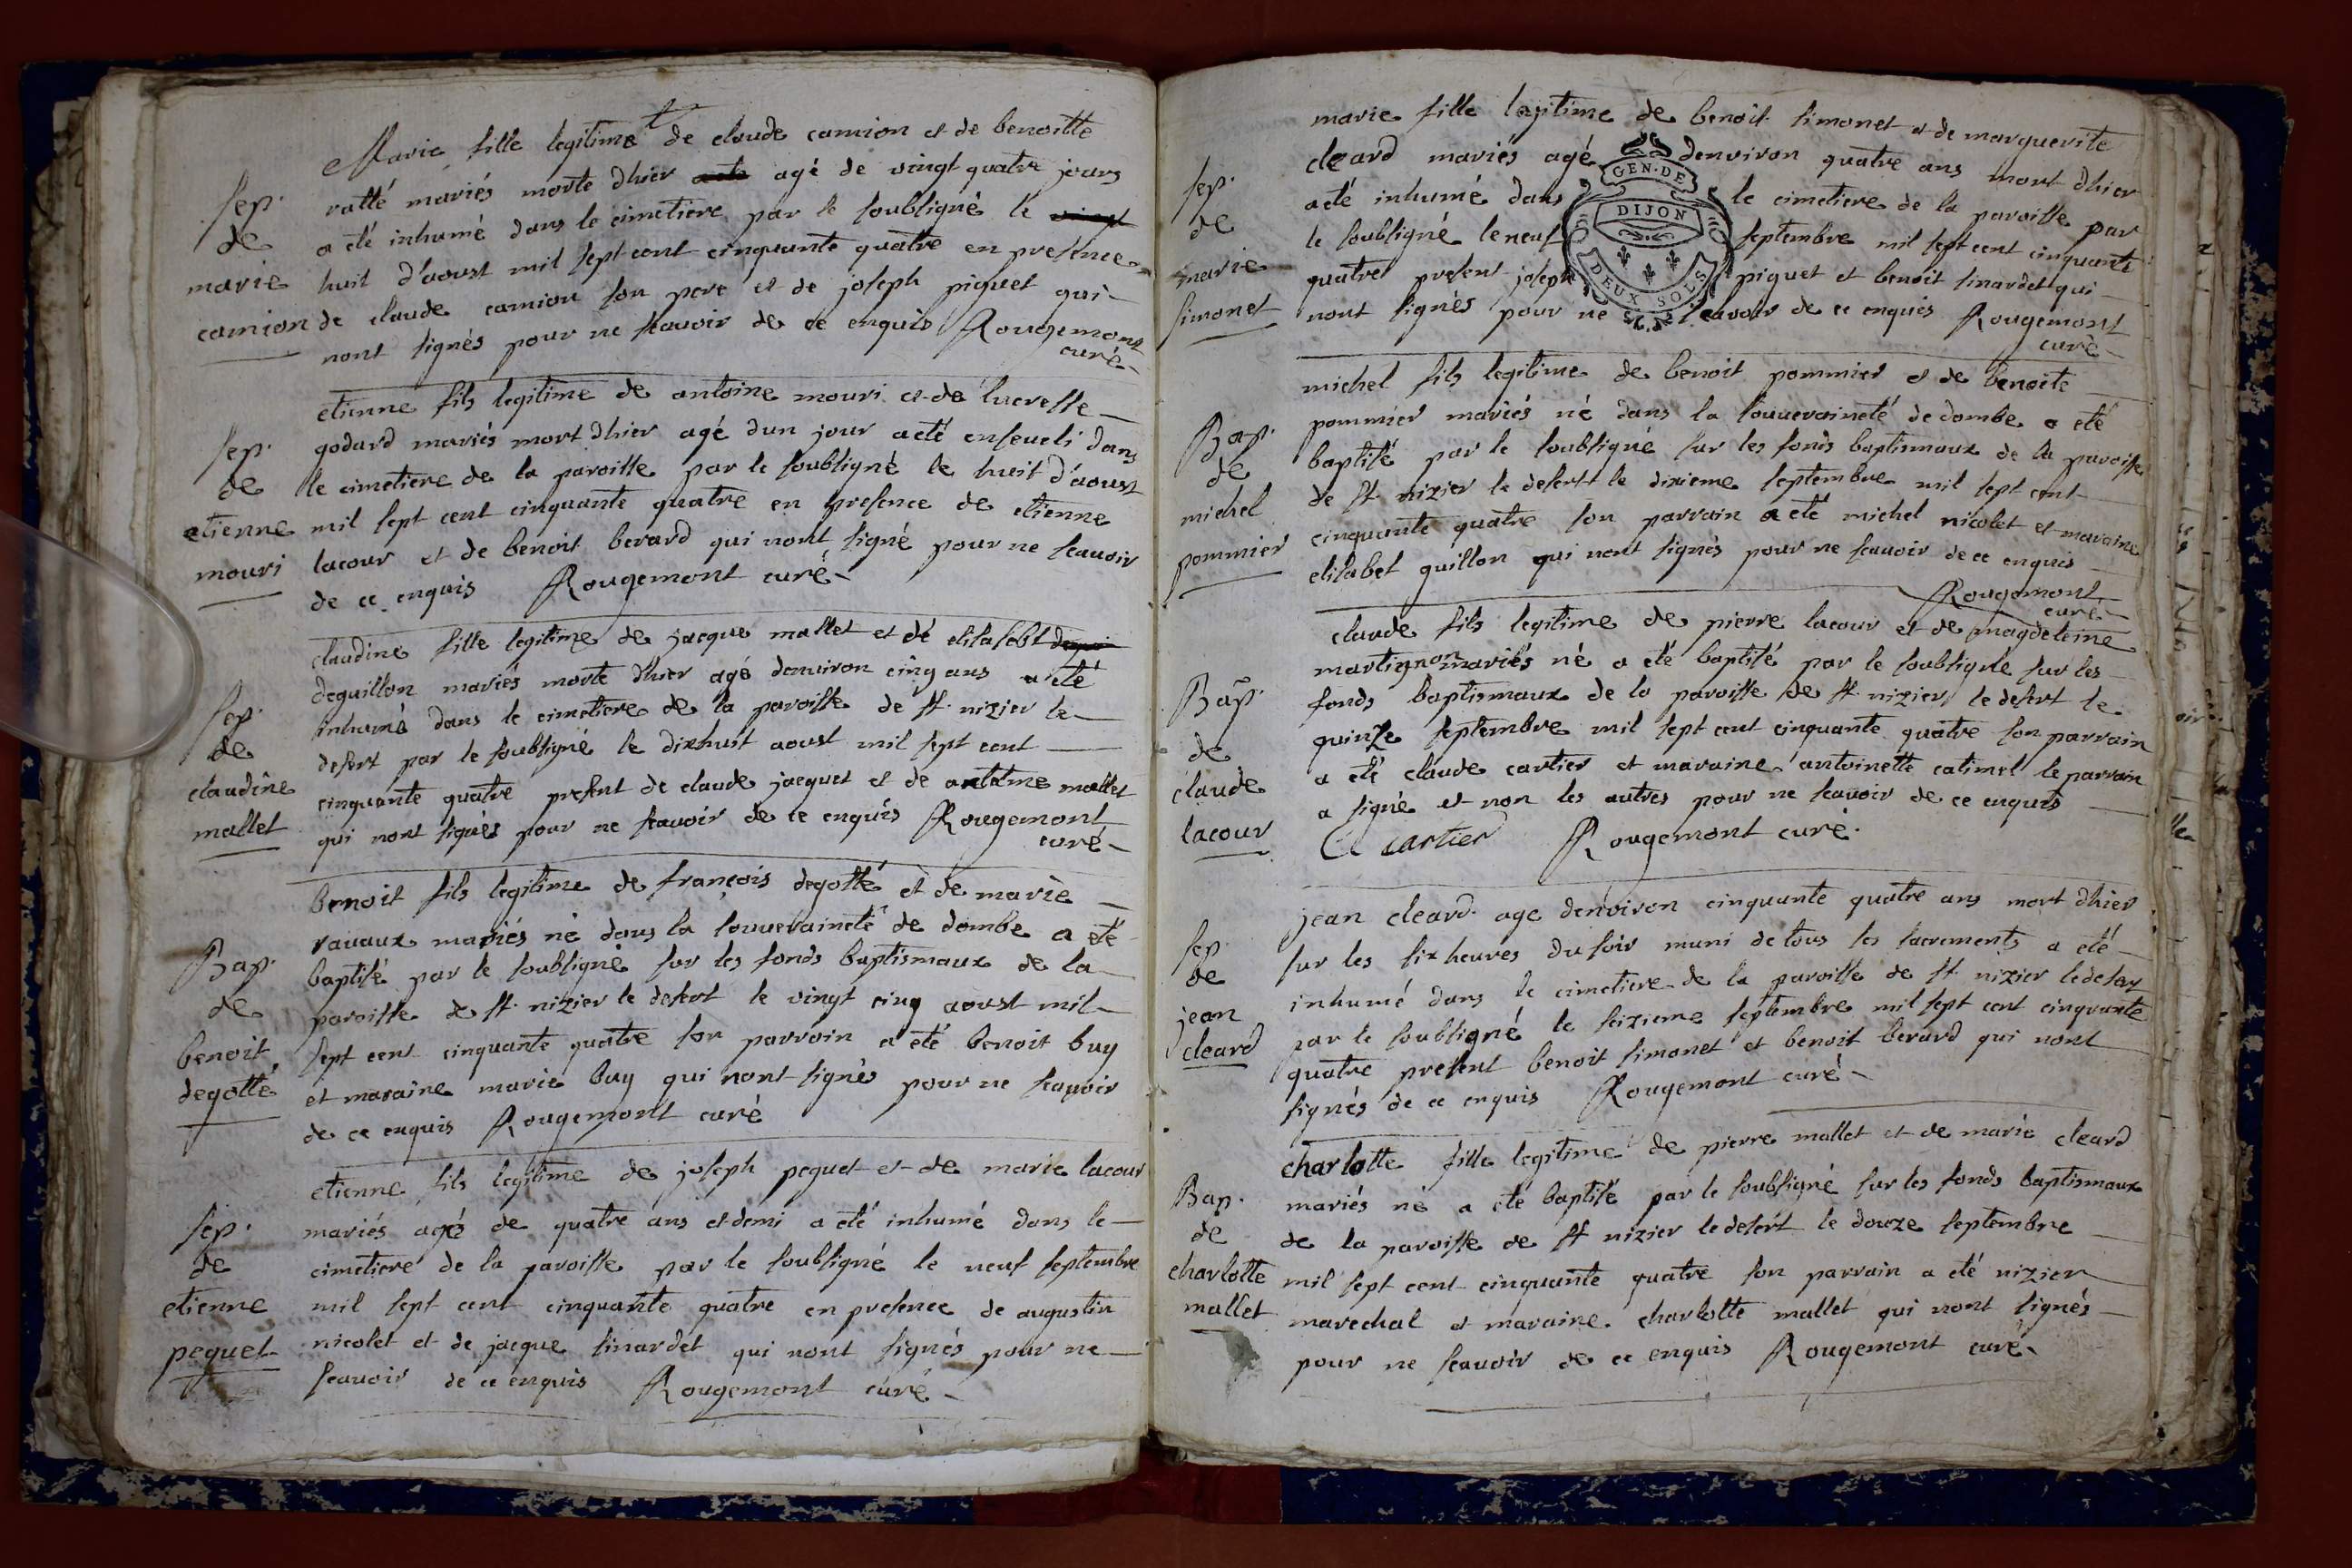 Marie fille legitime de claude camion et de benoitte
ratté mariés morte dhier agé de vingt quatre jours
a été inhumé dans le cimetiere par le soubsigné le vingt
huit d'aoust mil sept cent cinquante quatre en presence
de claude camion son pere et de joseph piquet qui
nont signés pour ne scavoir de ce enquis Rougemont
curé
sep.
de
marie
camion
etienne fils legitime de antoine mouri et de lucresse
godard mariés mort dhier agé dun jour a eté enseueli dans
le cimetiere de la paroisse par le soubsigné le huit d'aoust
mil sept cent cinquante quatre en presence de etienne
lacour et de benoit berard qui nont signé pour ne scauoir
de ce enquis Rougemont curé
sep.
de
etienne
mouri
claudine fille legitime de jacque mallet et dé elisabt
deguillon mariés morte dhier agé denviron cinq ans a eté
inhumé dans le cimetiere de la paroisse de st. nizier le
desert par le soubsigné le dixhuit aoust mil sept cent
cinquante quatre present de claude jacquet et de antoine mallet
qui nont signés pour ne scavoir de ce enquis Rougemont
curé
sep.
de
claudine
mallet
benoit fils legitime de françois degotté et de marie
rauaux mariés né dans la souueraineté de dombe a eté
baptisé par le soubsigné sur les fonds baptismaux de la
paroisse de st. nizier le desert le vingt cinq aoust mil
sept cent cinquante quatre son parrain a été benoit buy
et maraine marie buy qui nont signés pour ne scavoir
de ce enquis Rougemont curé
Bap.
de
benoit
degotté
etienne fils legitime de joseph peguet et de marie lacour
mariés agé de quatre ans et demi a eté inhumé dans le
cimetiere de la paroisse par le soubsigné le neuf septembre
mil sept cent cinquante quatre en presence de augustin
nicolet et de jacque sinardet qui nont signés pour ne
scauoir de ce enquis Rougemont curé
sep.
de
etienne
peguet
marie fille legitime de benoit simonet et de marguerite
cleard mariés agé denviron quatre ans mort dhier
a eté inhumé dans le cimetiere de la paroisse par
le soubsigné le neuf septembre mil sept cent cinquante
quatre present joseph piquet et benoit sinardet qui
nont signés pour ne scavoir de ce enquis Rougemont
curé
GEN·DE
DIJON
DEUX SOLS
sep.
de
marie
simonet
michel fils legitime de benoit pommier et de benoite
pommier mariés né dans la souueraineté de dombe a eté
baptisé par le soubsigné sur les fonds baptismaux de la paroisse
de st. nizier le desert le dixieme septembre mil sept cent
cinquante quatre son parrain a eté michel nicolet et maraine
elisabet guillon qui nont signés pour ne scavoir de ce enquis
Rougemont
curé
Bap.
de
michel
pommier
claude fils legitime de pierre lacour et de magdeleine
martignon mariés né a eté baptisé par le soubsigné sur les
fonds baptismaux de la paroisse de st. nizier le desert le
quinze septembre mil sept cent cinquante quatre son parrain
a eté claude cartier et maraine antoinette catimel le parrain
a signé et non les autres pour ne scavoir de ce enquis
Cl cartier Rougemont curé
Bap.
de
claude
lacour
jean cleard agé denviron cinquante quatre ans mort dhier
sur les six heures du soir muni de tous ses sacrements a eté
inhumé dans le cimetiere de la paroisse de st nizier le desert
par le soubsigné le seizieme septembre mil sept cent cinquante
quatre present benoit simonet et benoit berard qui nont
signés de ce enquis Rougemont curé
sep.
de
jean
cleard
charlotte fille legitime de pierre mallet et de marie cleard
mariés né a eté baptisé par le soubsigné sur les fonds baptismaux
de la paroisse de st nizier le desert le douze septembre
mil sept cent cinquante quatre son parrain a eté nizier
marechal et maraine charlotte mallet qui nont signés
pour ne scavoir de ce enquis Rougemont curé
Bap.
de
charlotte
mallet